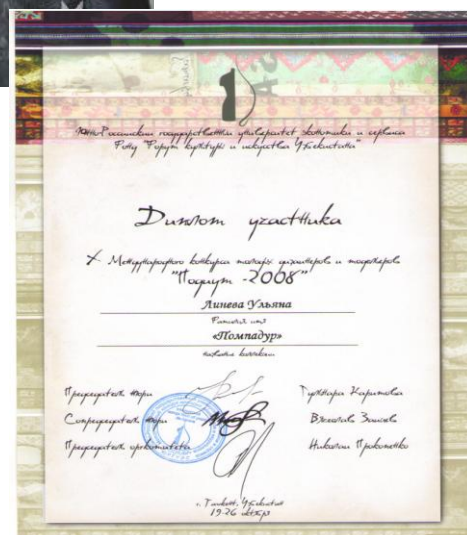 Южно-Российский государственный университет экономики и сервиса
Фонд "Форум культуры и искусства Узбекистана"
Диплом участника
X Международного конкурса молодых дизайнеров и модельеров
"Подиум - 2008"
Линева Ульяна
Фамилия имя
«Помпадур»
название коллекции
Председатель жюри
Гульнара Каримова
Сопредседатель жюри
Вячеслав Зайцев
Председатель оргкомитета
Николай Прокопенко
г. Ташкент, Узбекистан
19-26 октября